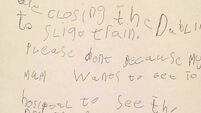 are CLOSING the DUBLIN
to SLIGO train.
Please dont Because My
Mam Wants to get to
hospital to see the